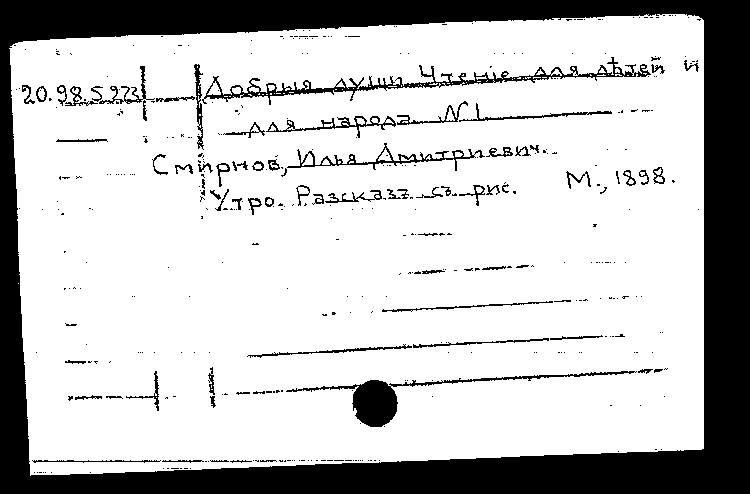 20.98.5.923 Добрыя души Чтеніе для дѣтей и
для народа. N 1
Смирнов, Илья Дмитриевич.
Утро. Разсказъ съ рис. М., 1898.